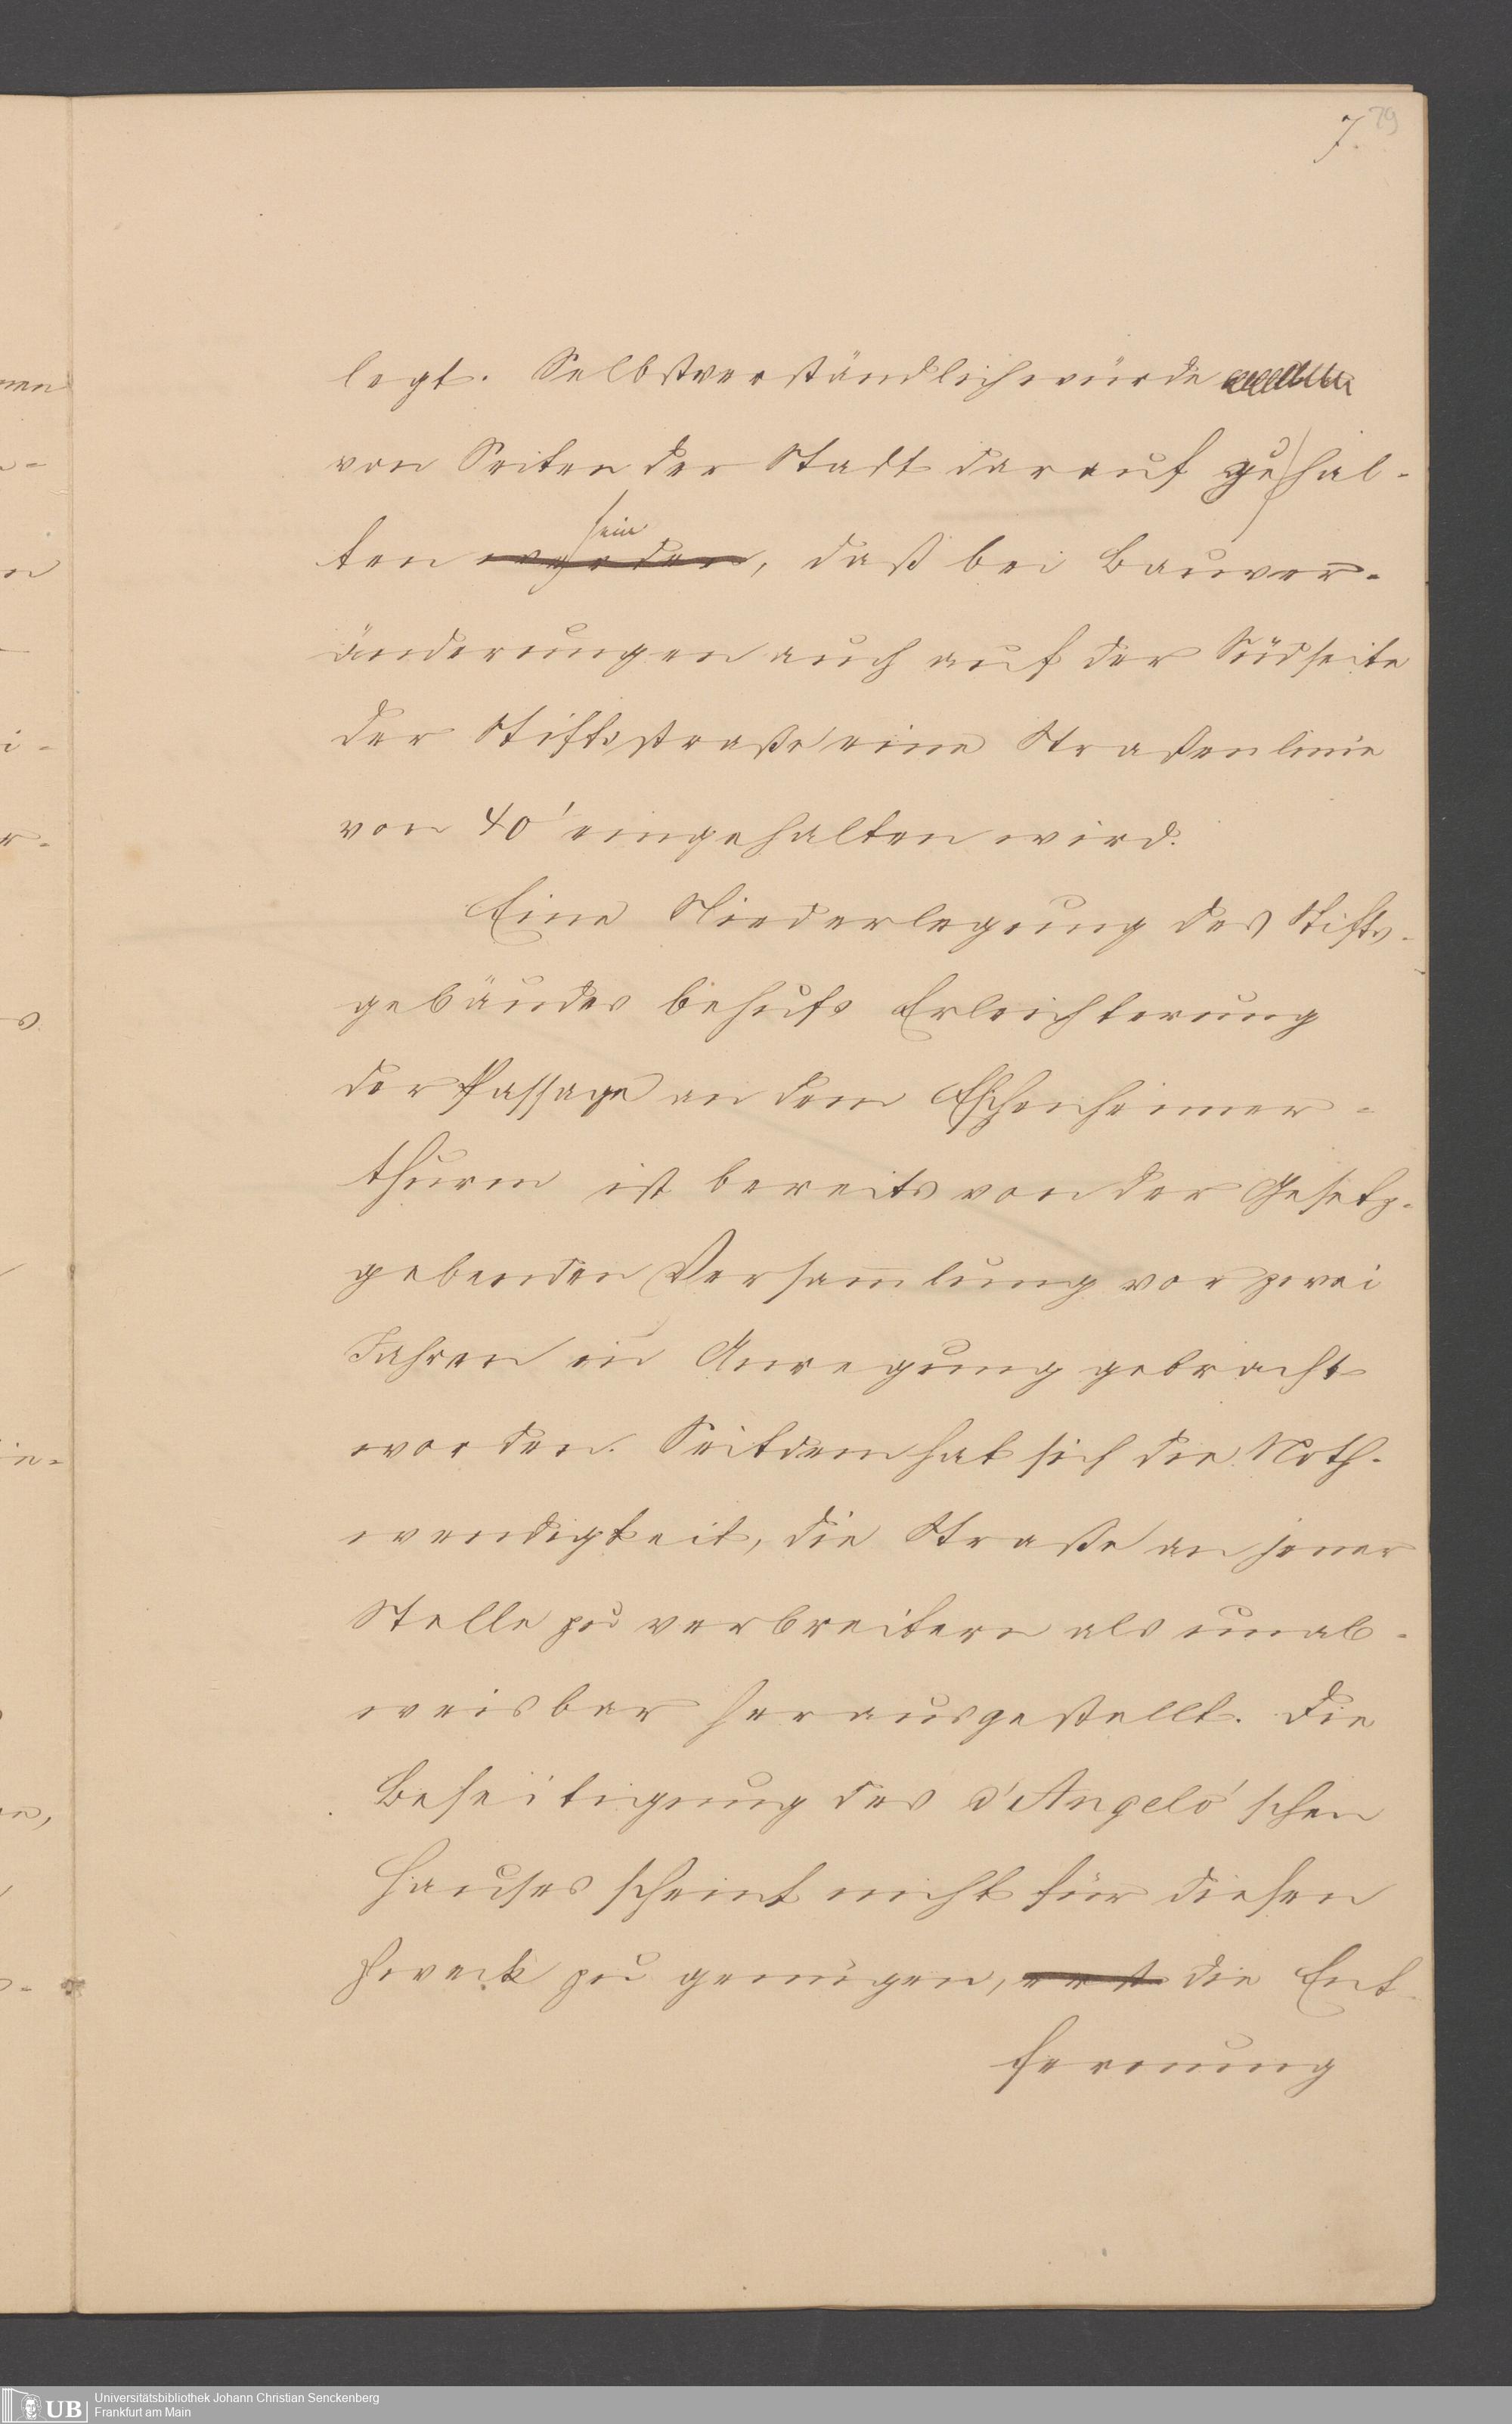 7. 79
legt. Selbstverständlich würde
von Seiten der Stadt darauf gehal-
sein
ten werden, daß bei Bauver-
änderungen auch auf der Südseite
der Stiftsstraße eine Straßenlinie
von 40' eingehalten wird.
Eine Niederlegung des Stifts-
gebäudes behufs Erleichterung
der Passage an dem Eschenheimer-
thurm ist bereits von der Gesetz-
gebenden Versam̄lung vor zwei
Jahren in Anregung gebracht
worden. Seitdem hat sich die Noth-
wendigkeit, die Straße an jener
Stelle zu verbreitern als unab-
weisbar herausgestellt. Die
Beseitigung des d'Angelo'schen
Hauses scheint nicht für diesen
Zweck zu genügen, erst die Ent-
fernung
UB
Universitätsbibliothek Johann Christian Senckenberg
Frankfurt am Main